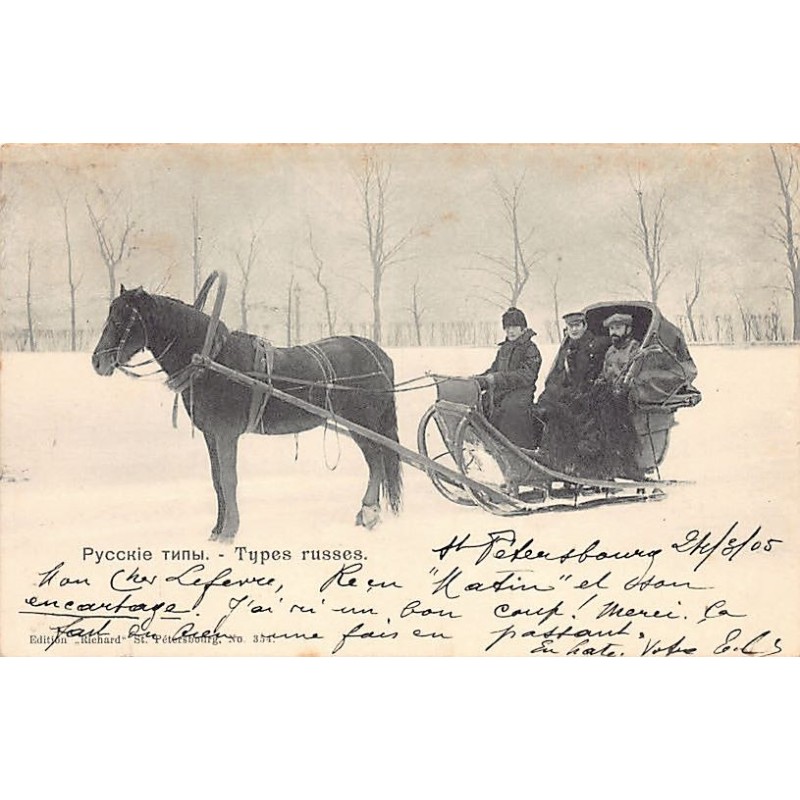 Русскіе типы. - Types russes.
St Pétersbourg 24/3/05
Mon Cher Lefevre, Reçu "Matin" et son
encartage. J'ai ri un bon coup! Merci. Ça
fait du bien une fois en passant.
Edition „Richard" St. Pétersbourg, No. 354.
En hate. Votre